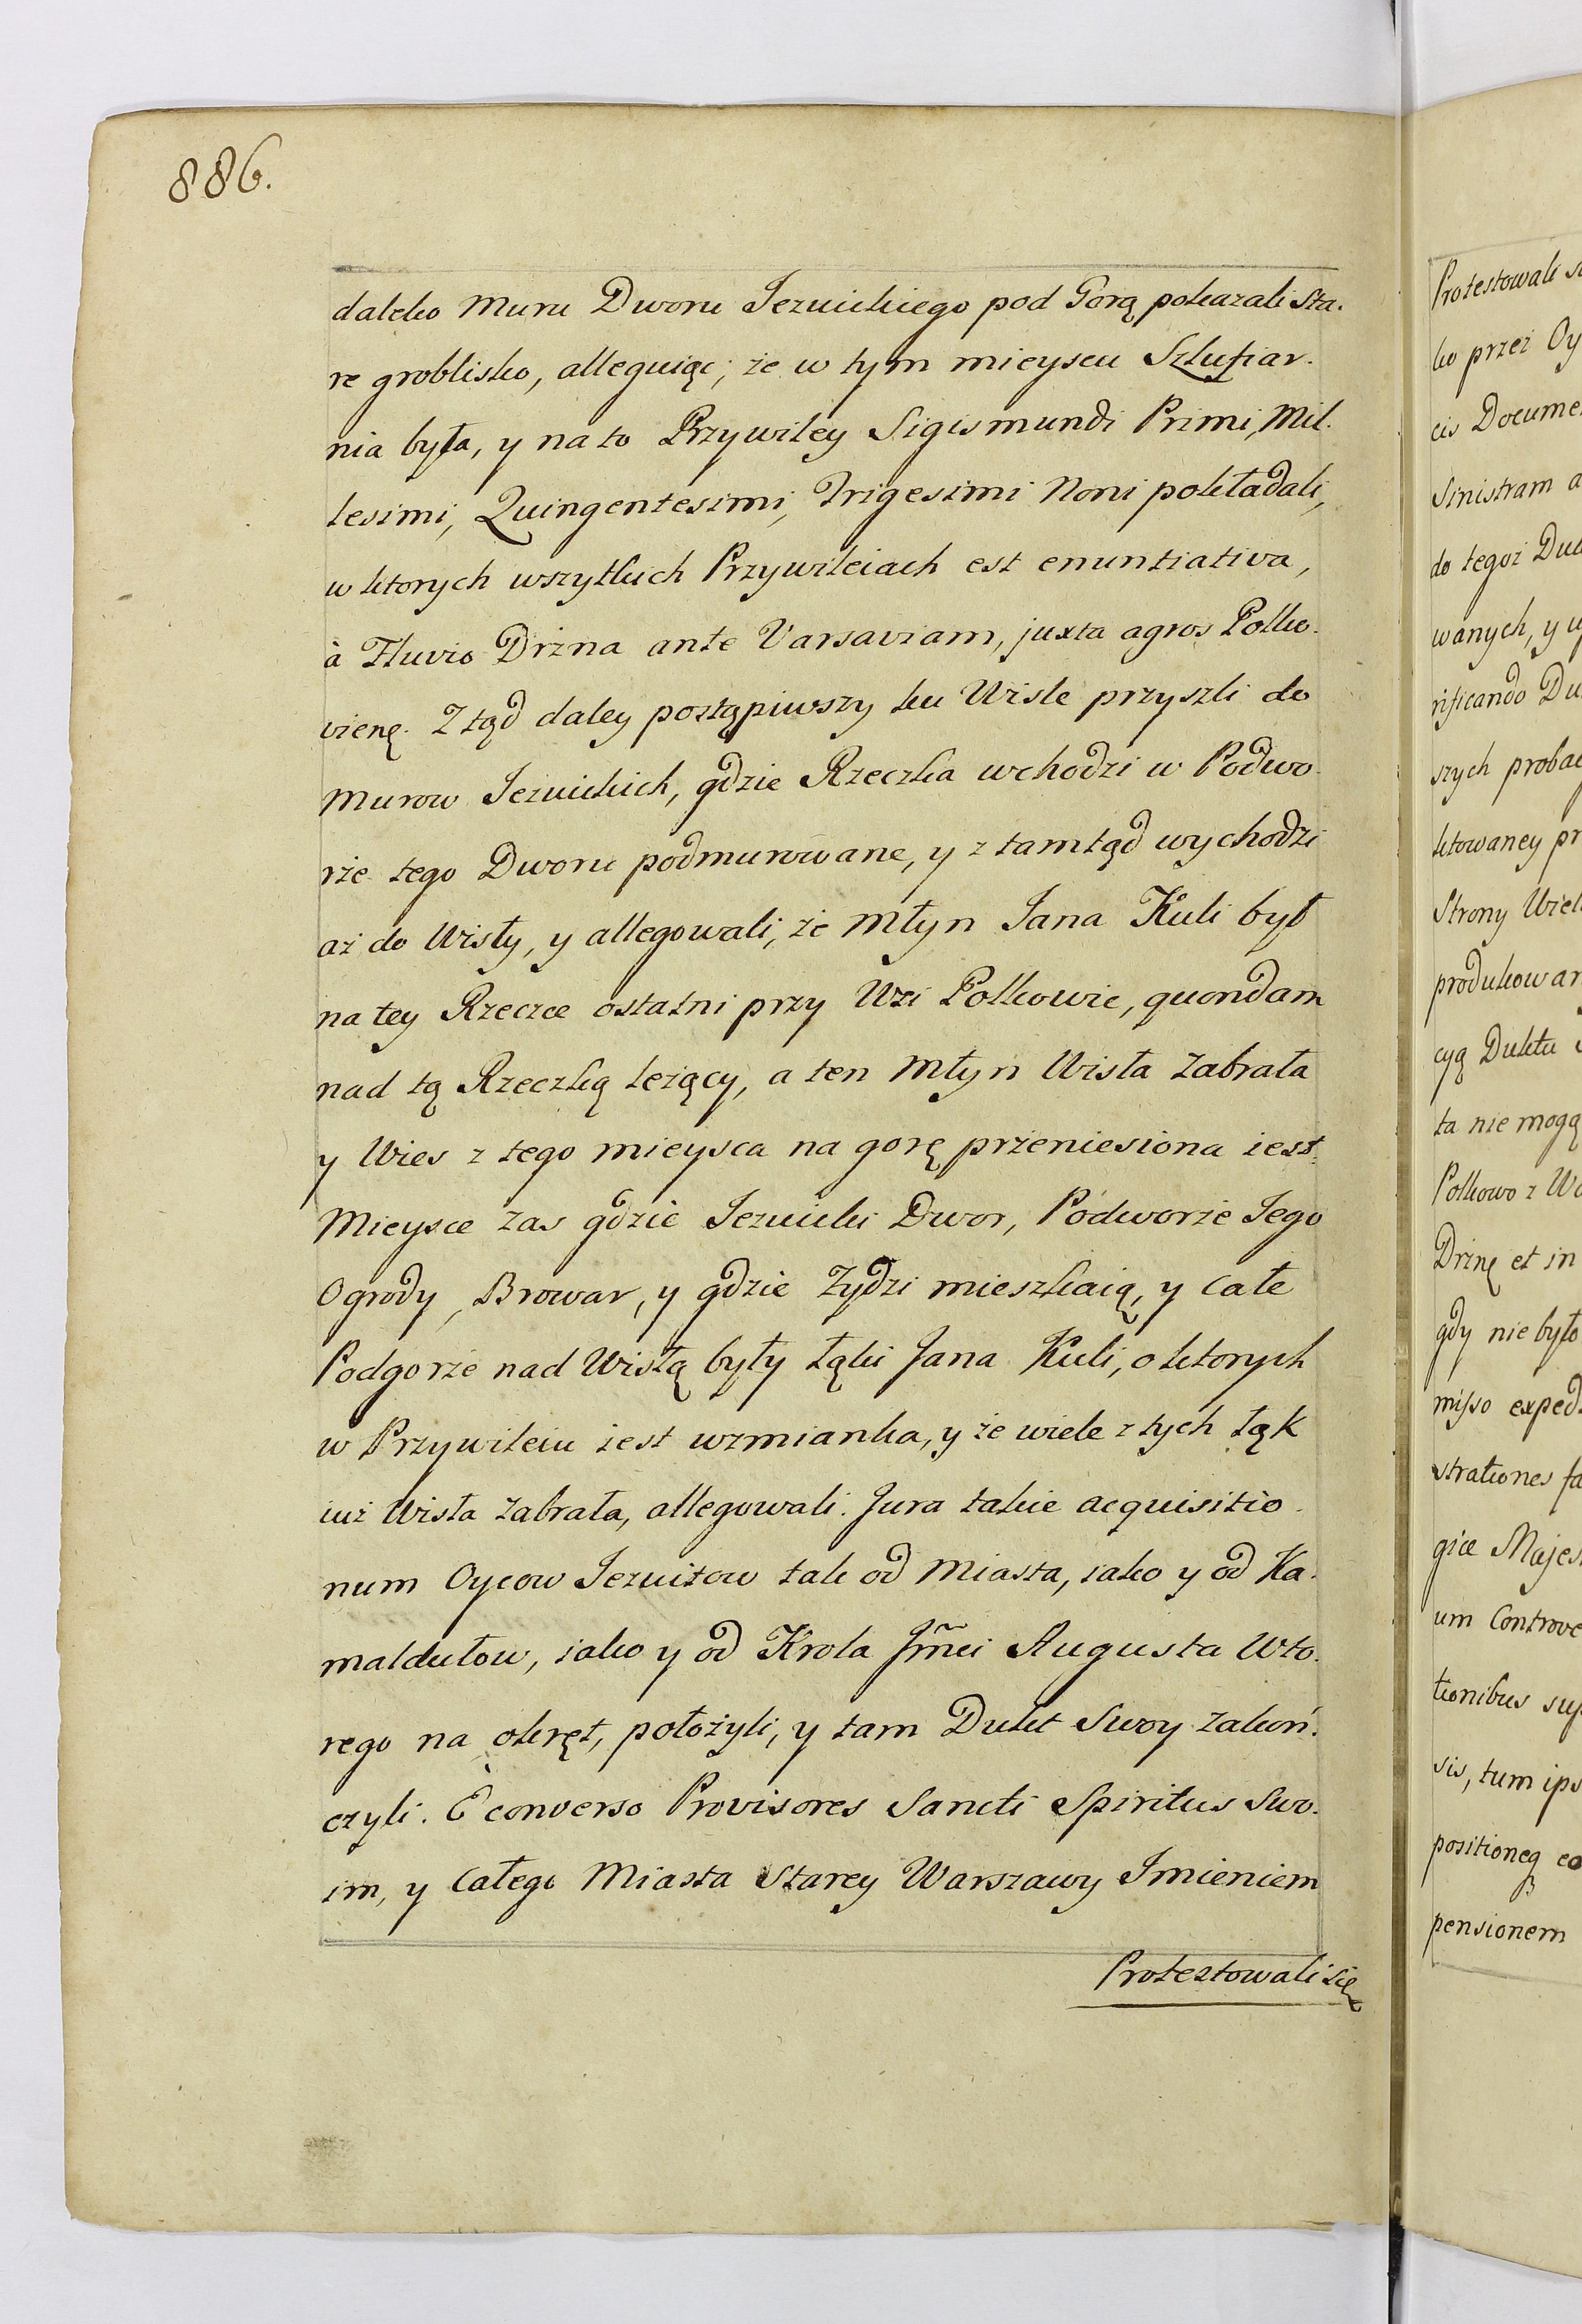 886.
daleko Muru Dworu Jezuickiego pod Gorą pokazali Sta.
re groblisko, alleguiąc; że w tym mieyscu Szlufiar.
nia była, y na to Przywiley Sigismundi Primi, Mil.
lesimi, Quingentesimi, Trigesimi Noni pokładali,
w ktorych wszytkich Przywileiach est enuntiativa,
à Fluvio Drżna ante Varsaviam, juxta agros Polko.
vienę. Ztąd daley postąpiwszy ku Wisle przyszli do
Murow Jezuickich, gdzie Rzeczka wchodzi w Podwo.
rże tego Dworu podmurowane, y z tamtąd wychodzi
aż do Wisły, y allegowali, że Młyn Jana Kuli był
na tey Rzeczce ostatni przy Wsi Polkowie, quondam
nad tą Rzeczką leżący, a ten Młyn Wisła zabrała
y Wies z tego mieysca na gorę przeniesiona iest.
Mieysce zas gdzie Jezuicki Dwor, Podworże Jego
Ogrody, Browar, y gdzie Żydzi mieszkaią, y całe
Podgorże nad Wisłą były łąki Jana Kuli, o ktorych
w Przywileiu iest wzmianka, y że wiele z tych łąk
iuż Wisła zabrała, allegowali. Jura takie acquisitio.
num Oycow Jezuitow tak od Miasta, iako y od Ka.
maldułow, iako y od Krola Jmci Augusta Wto.
rego na okręt, położyli, y tam Dukt Swoy zakoń.
czyli. È converso Provisores Sancti Spiritus Swo.
im, y całego Miasta Starey Warszawy Imieniem
Protestowali się
Protestowali
ko przez
cis
Sinistram
do tegoż
wanych, y
szych
ktowaney
Strony
cyą Duktu
ta nie mogą
Polkowo z
Drżnę et in
gdy nie było
misso
strationes
um
tionibus
sis, tum
pensionem